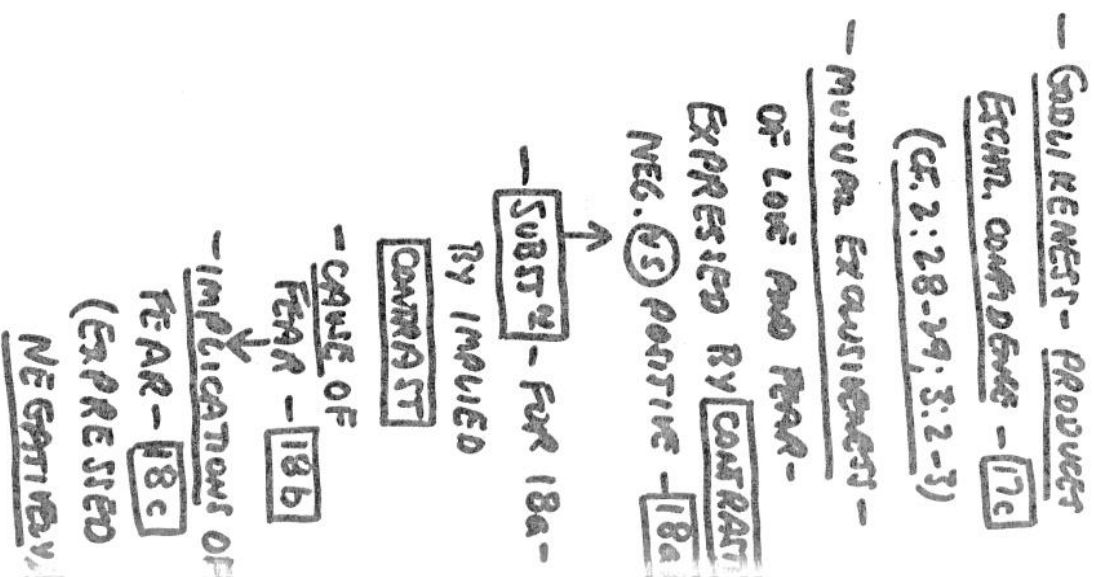 — GODLIKENESS - PRODUCES
ESCHTL CONFIDENCE - 17c
(CF. 2:28-29; 3:2-3)
— MUTUAL EXCLUSIVENESS -
OF LOVE AND FEAR -
EXPRESSED BY CONTRAST
NEG. VS POSITIVE - 18a
— SUBST'N - FOR 18a -
BY IMPLIED
CONTRAST
- CAUSE OF
FEAR - 18b
- IMPLICATIONS OF
FEAR - 18c
(EXPRESSED
NEGATIVELY